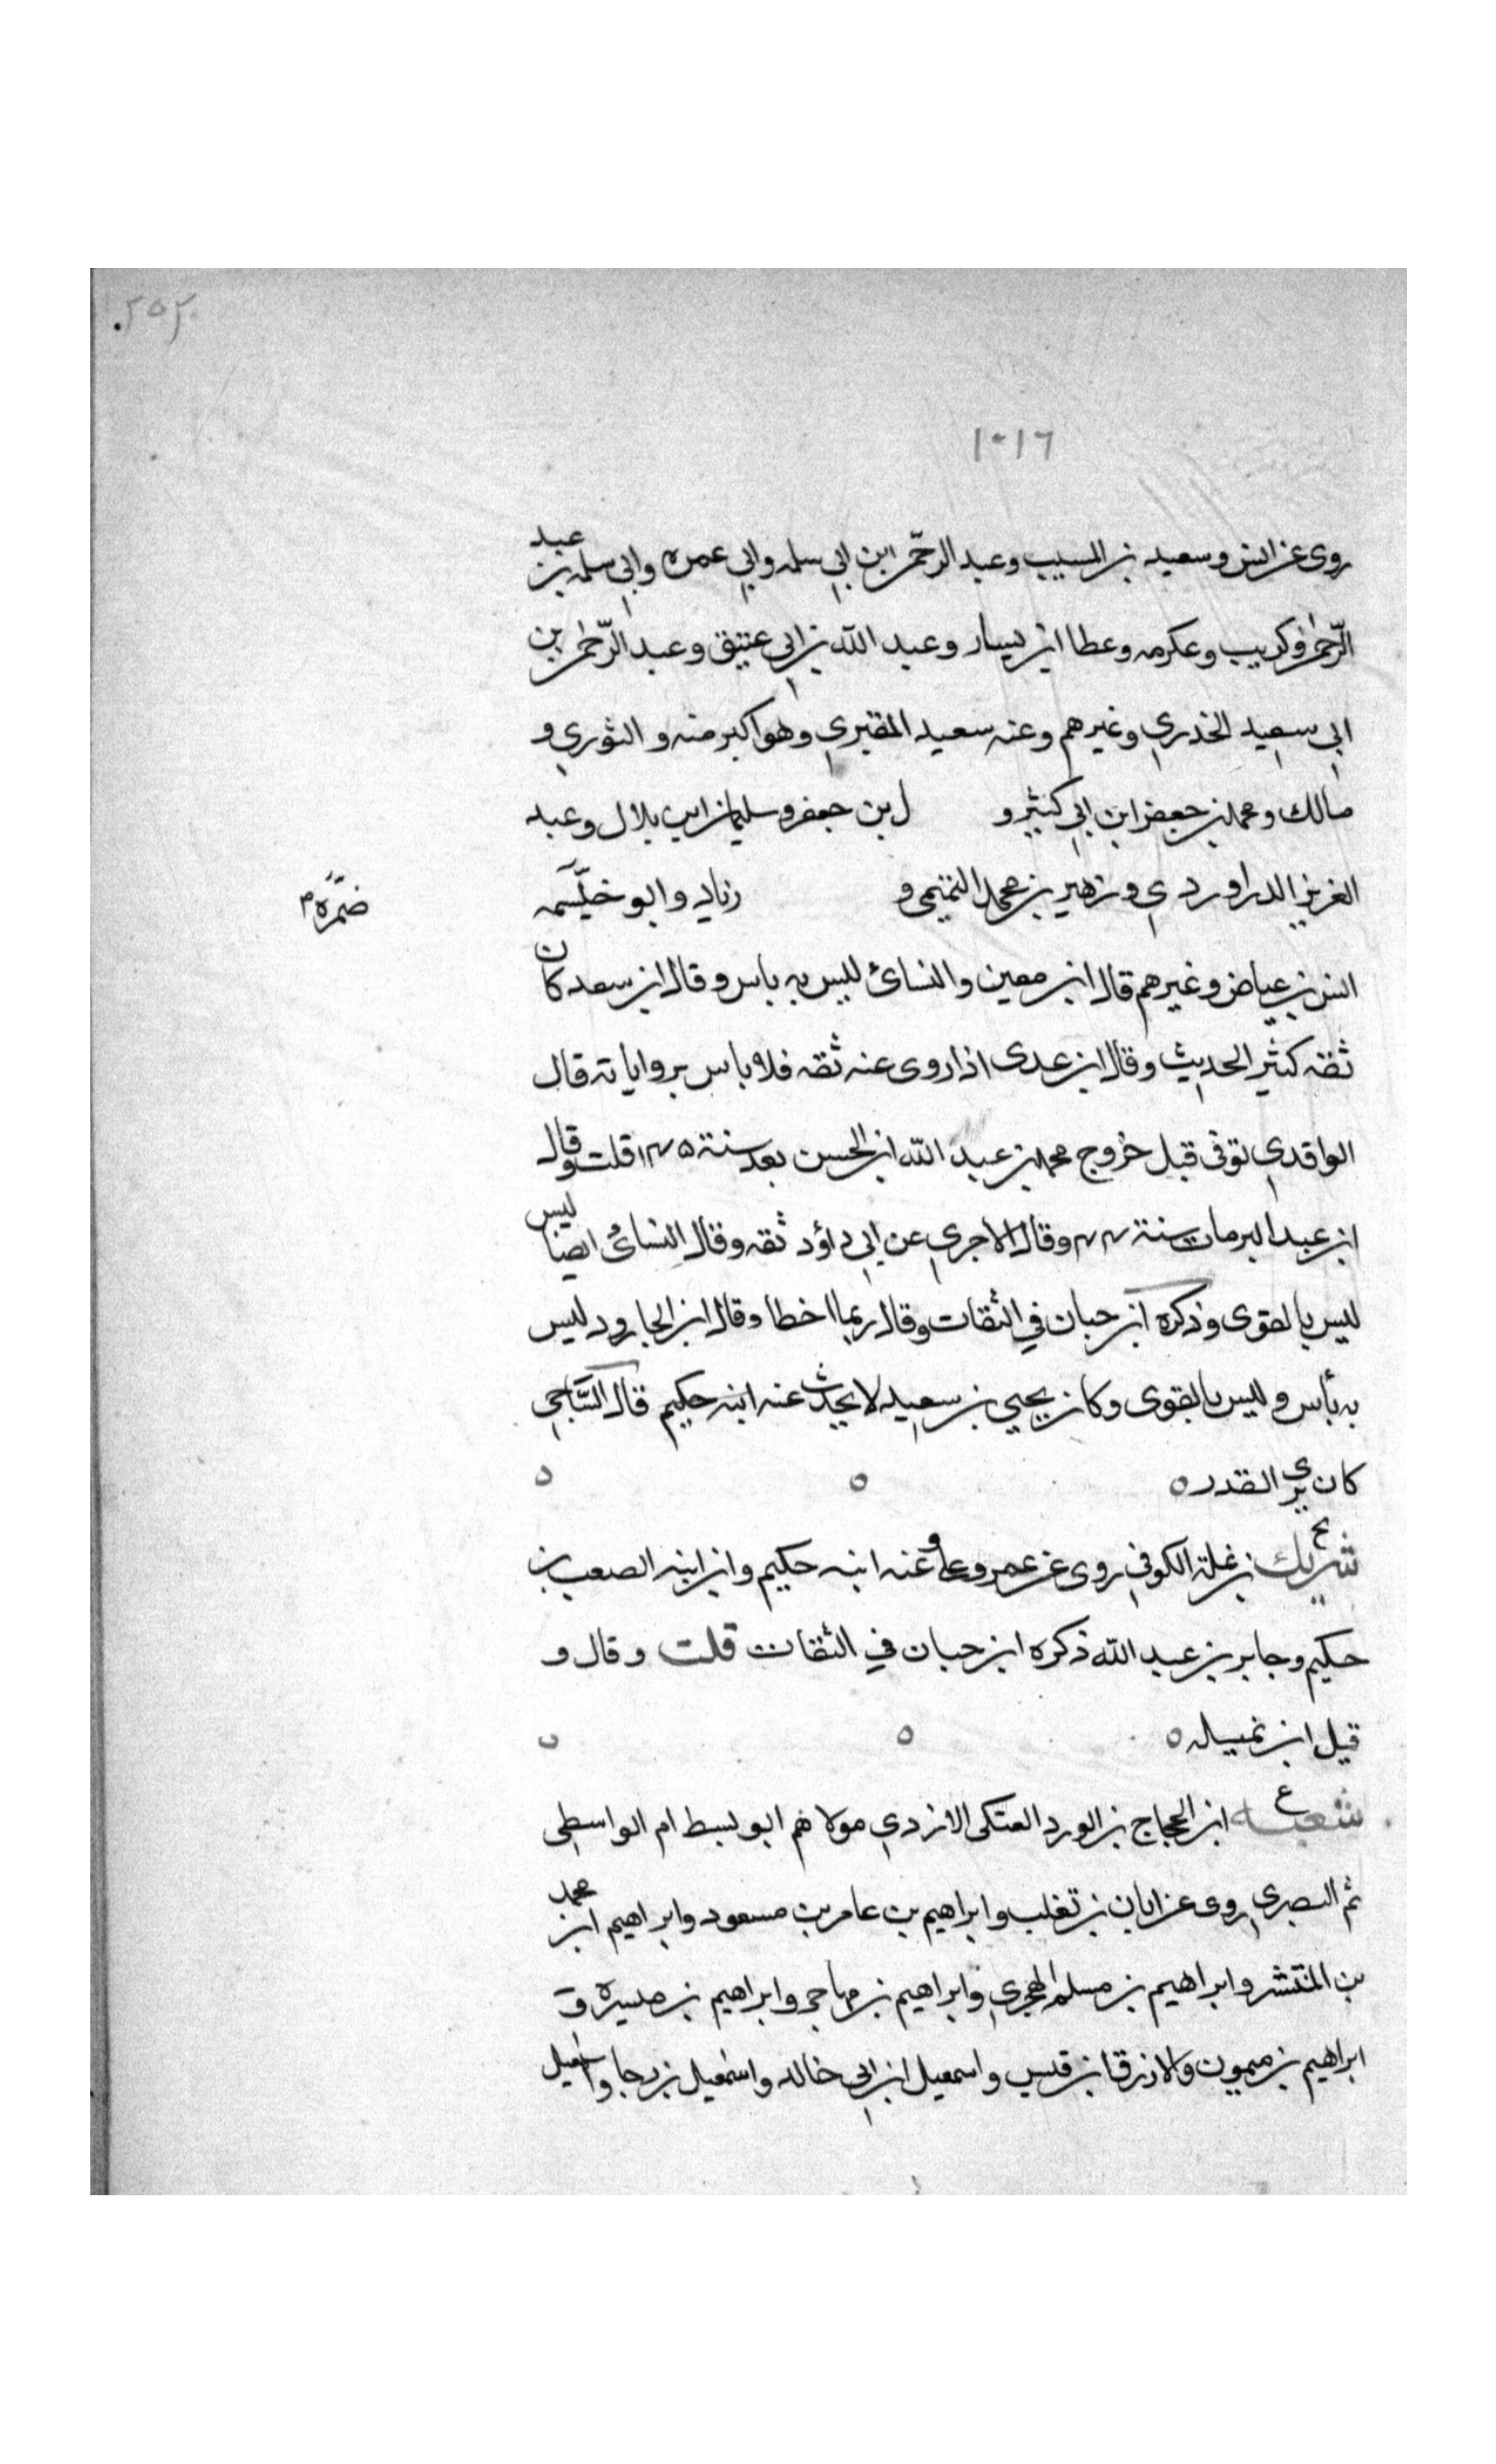 ٢٥٢
١٠١٦
روى عن انس وسعيد بن المسيب وعبد الرحمن ابن ابي سلمه وابي عمره وابي سلمه بن عبد
الرّحمن وكريب وعكرمه وعطا ابن يسار وعبد الله بن ابي عتيق وعبد الرّحمن بن
ابي سعيد الخدري وغيرهم وعنه سعيد المقبري وهو اكبر منه و الثوري و
مالك و محمد بن جعفر ابن ابي كثير و ل بن جعفر وسليمان ابن بلال وعبد
العزيز الدراوردي وزهير بن محمد التميمي و زياد وابو خيثمه
ضمره م
انس بن عياض وغيرهم قال ابن معين والنسائ ليس به باس وقال ابن سعد كان
ثقه كثير الحديث وقال ابن عدى اذا روى عنه ثقه فلا باس برواياته قال
الواقدي توفى قبل خروج محمد بن عبد الله ابن الحسن بعد سنة ١٤٥ قلت وقال
ابن عبد البر مات سنة ٤٤ وقال الاجري عن ابي داؤد ثقه وقال النسائ ايضا ليس
ليس بالقوى وذكره ابن حبان في الثقات وقال ربما اخطا وقال ابن الجارود ليس
به بأس وليس بالقوى وكان يحيي بن سعيد لا يحدث عنه ابنه حكيم قال السّاجي
كان يرى القدر ه ه ه
شريك بن نملة الكوفي روى عن عمر وعلى وعنه ابنه حكيم وابن ابنه الصعب بن
حكيم وجابر بن عبد الله ذكره ابن حبان في الثقات قلت وقال و
قيل ابن نميله ه ه ه
شعبه ع ابن الحجاج بن الورد العتكى الازدي مولاهم ابو بسطام الواسطى
ثم البصري روى عن ابان بن تغلب وابراهيم بن عامر بن مسعود وابراهيم ابن محمد
بن المنتشر وابراهيم بن مسلم الهجري وابراهيم بن مهاجر وابراهيم بن ميسره و
ابراهيم بن ميمون والازرق بن قيس واسمعيل ابن ابي خالد واسمعيل بن رجا واسمعيل